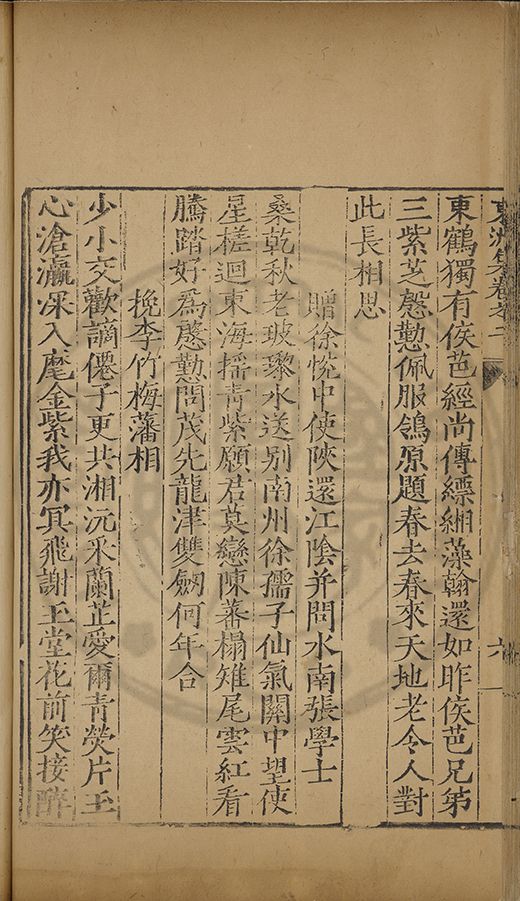 東洲集卷之二 六
東鶴獨有侯芭經尚傳縹緗藻翰還如昨侯芭兄弟
三紫芝慇懃佩服鴒原題春去春來天地老令人對
此長相思
贈徐悅中使陝還江陰并問水南張學士
桑乾秋老玻瓈水送别南州徐孺子仙氣關中望使
星槎迴東海搖青紫願君莫戀陳蕃榻雉尾雲紅看
騰踏好爲慇懃問茂先龍津雙劒何年合
挽李竹梅藩相
少小交歡謫僊子更共湘沅采蘭芷愛爾青熒片玉
心滄瀛深入麾金紫我亦冥飛謝玉堂花前笑接醉